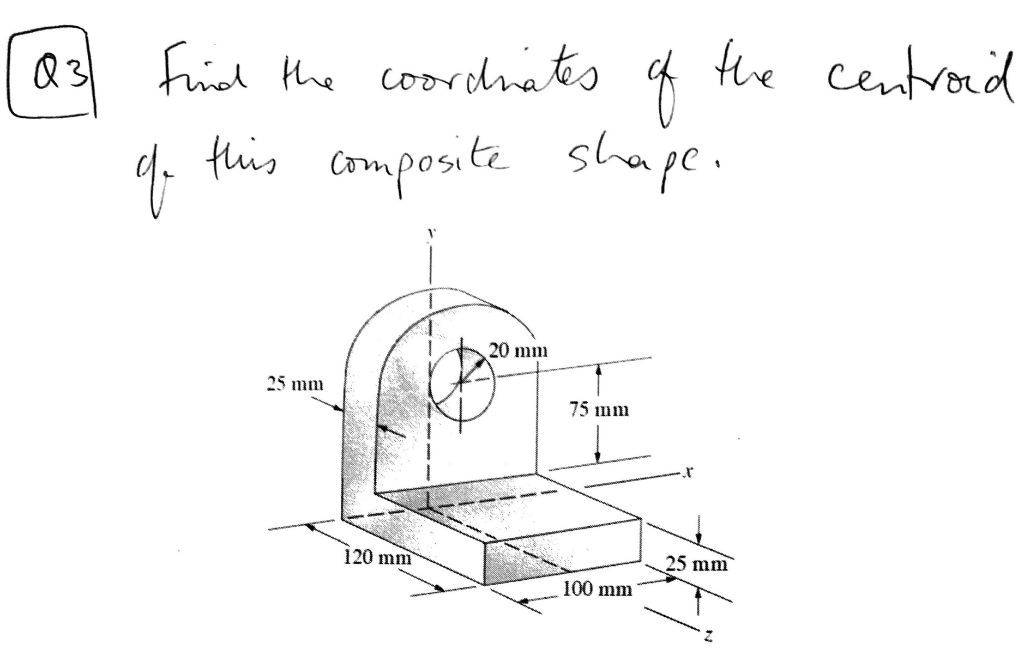 Q3 Find the coordinates of the centroid
of this composite shape.
y
20 mm
25 mm
75 mm
x
120 mm
25 mm
100 mm
z